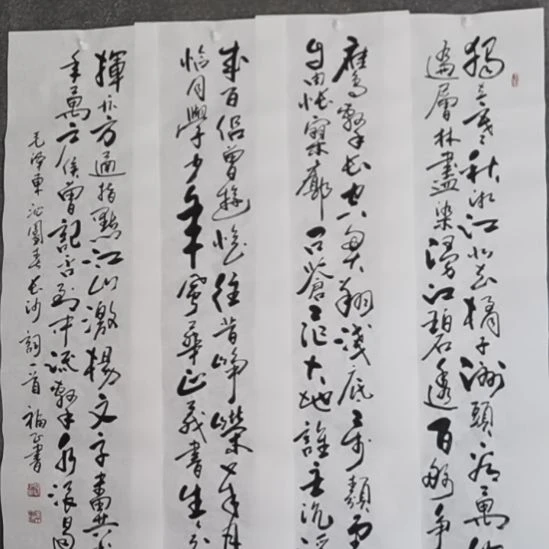 獨立寒秋湘江北去橘子洲頭看萬
遍層林盡染漫江碧透百舸爭
鷹擊長空魚翔淺底萬類霜
自由悵寥廓問蒼茫大地誰主沉浮
來百侶曾遊憶往昔崢嶸歲月
恰同學少年風華正茂書生意
揮斥方遒指點江山激揚文字糞土
年萬戶侯曾記否到中流擊水浪遏
毛澤東沁園春長沙詞一首 福 書